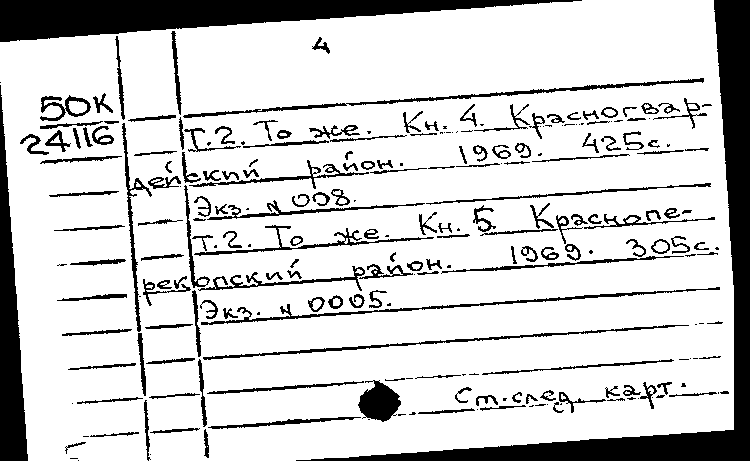 4
50К
24116
Т.2. То же. Кн. 4. Красногвар-
дейский район. 1969. 425с.
Экз. N 008.
Т.2. То же. Кн. 5. Краснопе-
рекопский район. 1969. 305с.
Экз. N 0005.
См. след. карт.